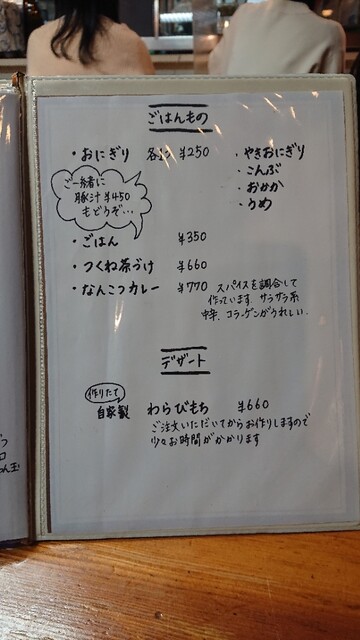 ごはんもの
・おにぎり 各種 ¥250
・やきおにぎり
・こんぶ
・おかか
・うめ
ご一緒に
豚汁¥450
もどうぞ...
・ごはん ¥350
・つくね茶づけ ¥660
・なんこつカレー ¥770 スパイスを調合して
作っています。サラサラ系
コラーゲンがうれしい。
デザート
作りたて
自家製 わらびもち ¥660
ご注文いただいてからお作りしますので
少々お時間がかかります